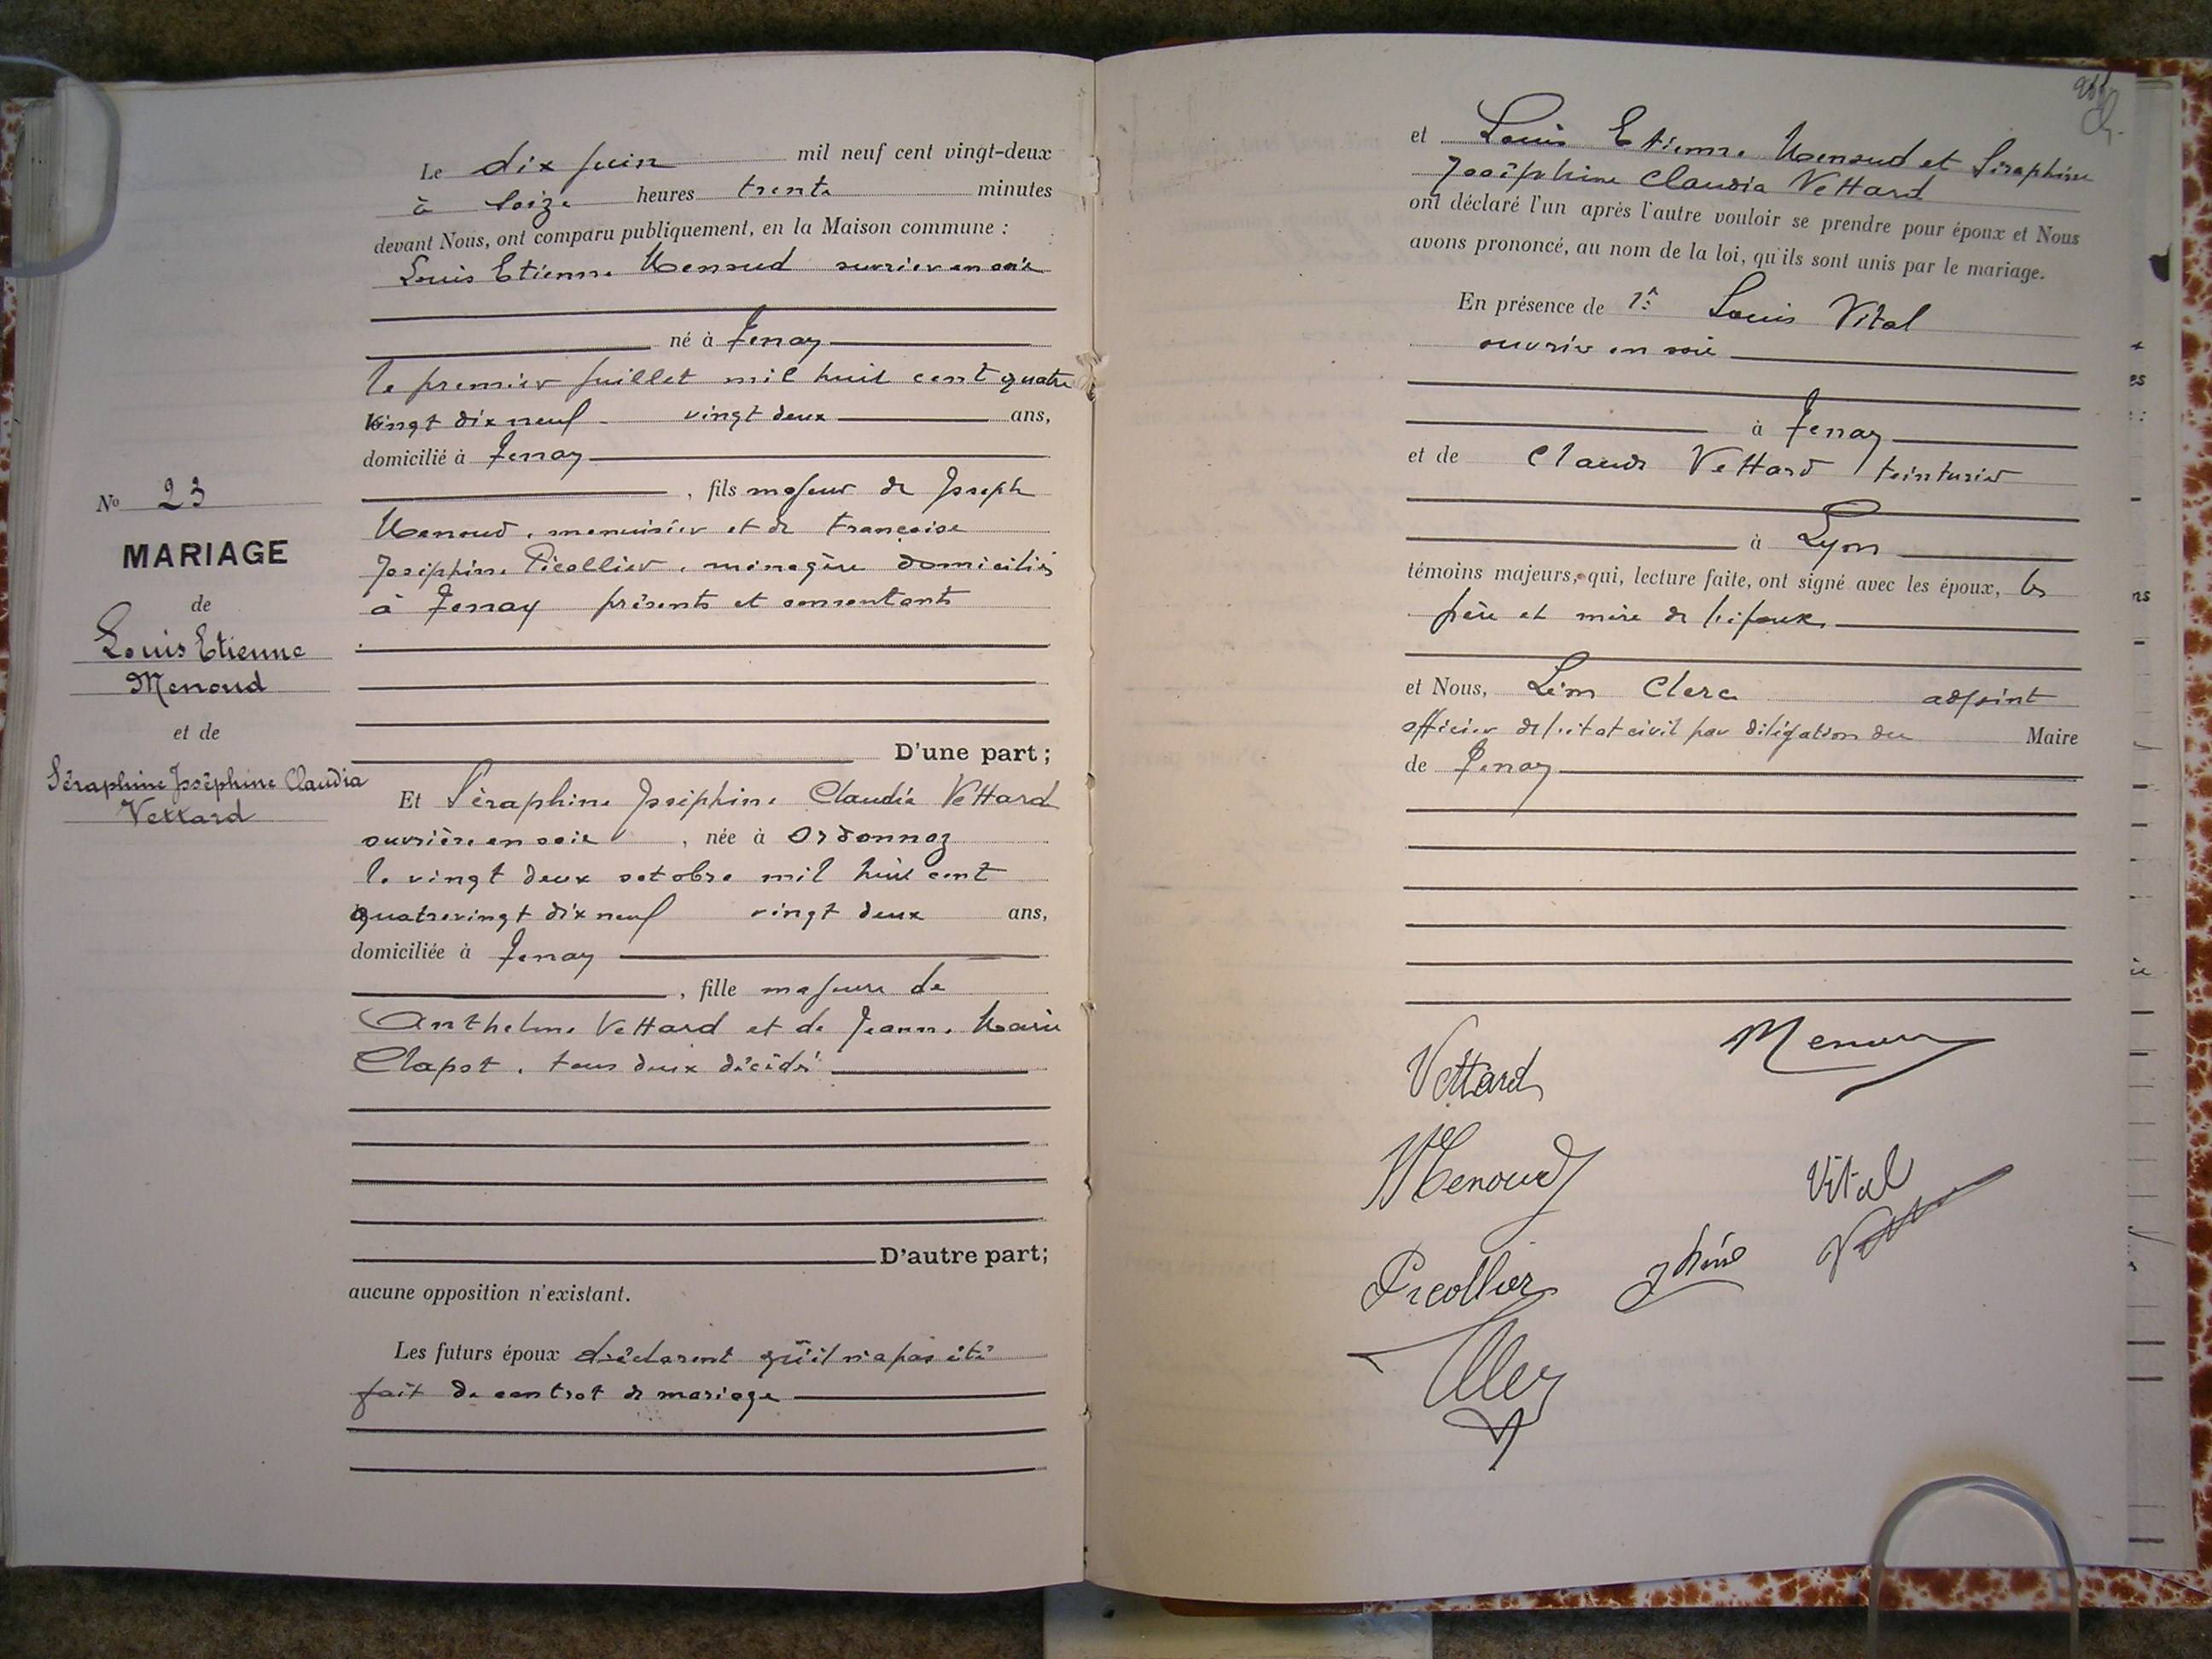 No 23
MARIAGE
de
Louis Etienne
Menoud
et de
Séraphine Joséphine Claudia
Vettard
Le dix juin mil neuf cent vingt-deux
à seize heures trente minutes
devant Nous, ont comparu publiquement, en la Maison commune :
Louis Etienne Menoud ouvrier en soie
né à Tenay
le premier juillet mil huit cent quatre
vingt dix neuf vingt deux ans,
domicilié à Tenay
, fils majeur de Joseph
Menoud, menuisier et de Françoise
Joséphine Picollier, ménagère domiciliés
à Tenay présents et consentants
D'une part ;
Et Séraphine Joséphine Claudia Vettard
ouvrière en soie , née à Ordonnaz
le vingt deux octobre mil huit cent
quatrevingt dix neuf vingt deux ans,
domiciliée à Tenay
, fille majeure de
Anthelme Vettard et de Jeanne Marie
Clapot, tous deux décédés
D'autre part;
aucune opposition n'existant.
Les futurs époux déclarent qu'il n'a pas été
fait de contrat de mariage
et Louis Etienne Menoud et Séraphine
Joséphine Claudia Vettard
ont déclaré l'un après l'autre vouloir se prendre pour époux et Nous
avons prononcé, au nom de la loi, qu'ils sont unis par le mariage.
En présence de Louis Vital
ouvrier en soie
à Tenay
et de Claude Vettard teinturier
à Lyon
témoins majeurs, qui, lecture faite, ont signé avec les époux, les
père et mère de l'époux,
et Nous, Léon Clerc adjoint
officier de l'état civil par délégation du Maire
de Tenay
Vettard
Menoud
Vital
Picollier